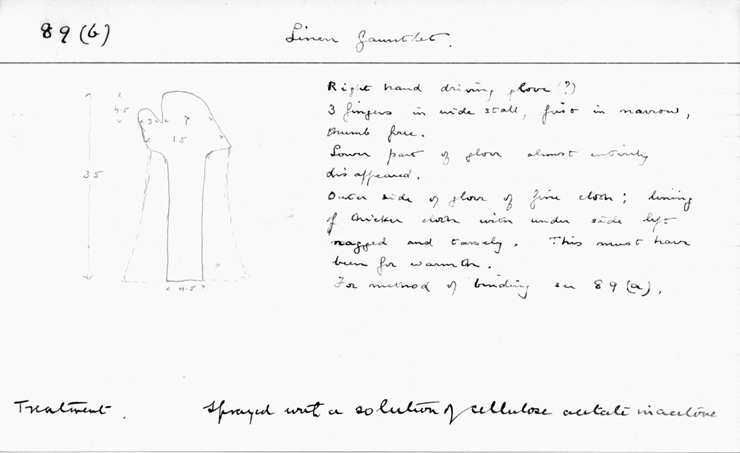 89 (b)
Linen Gauntlet.
Right hand driving glove (?)
3 fingers in wide stall, first in narrow,
thumb free.
Lower part of glove almost entirely
disappeared.
Outer side of glove of fine cloth; lining
of thicker cloth with under side left
ragged and tassely. This must have
been for warmth.
For method of binding see 89 (a).
4.5
3
7
15
35
< 4.5 >
Treatment. Sprayed with a solution of cellulose acetate in acetone